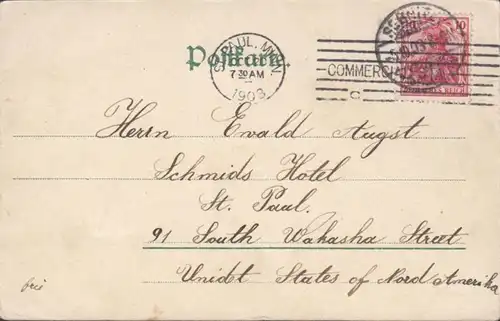 Postkarte
ST. PAUL, MINN.
7 30 AM
1903
COMMERCI
10
REICH
Herrn Ewald Augst
Schmids Hotel
St. Paul.
91 South Wakasha Street
Unidt States of Nord Amerika
frei